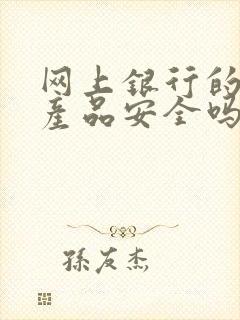 网上银行的
产品安全吗
孫友杰